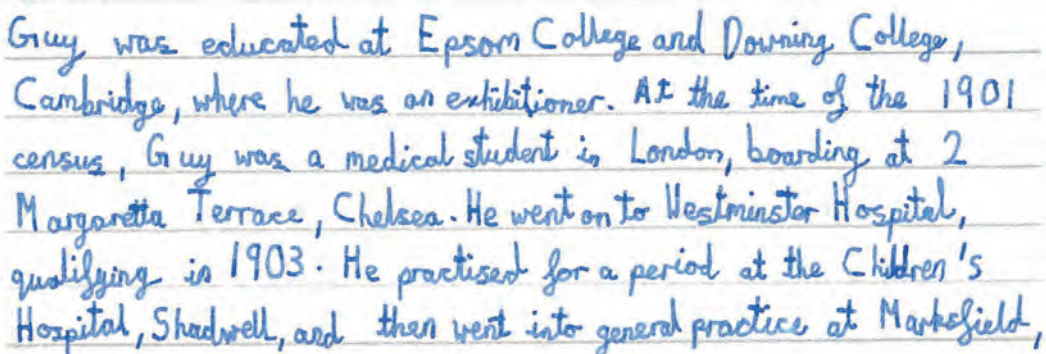 Guy was educated at Epsom College and Downing College,
Cambridge, where he was an exhibitioner. At the time of the 1901
census, Guy was a medical student in London, boarding at 2
Margaretta Terrace, Chelsea. He went on to Westminster Hospital,
qualifying in 1903. He practised for a period at the Children's
Hospital, Shadwell, and then went into general practice at Marksfield,